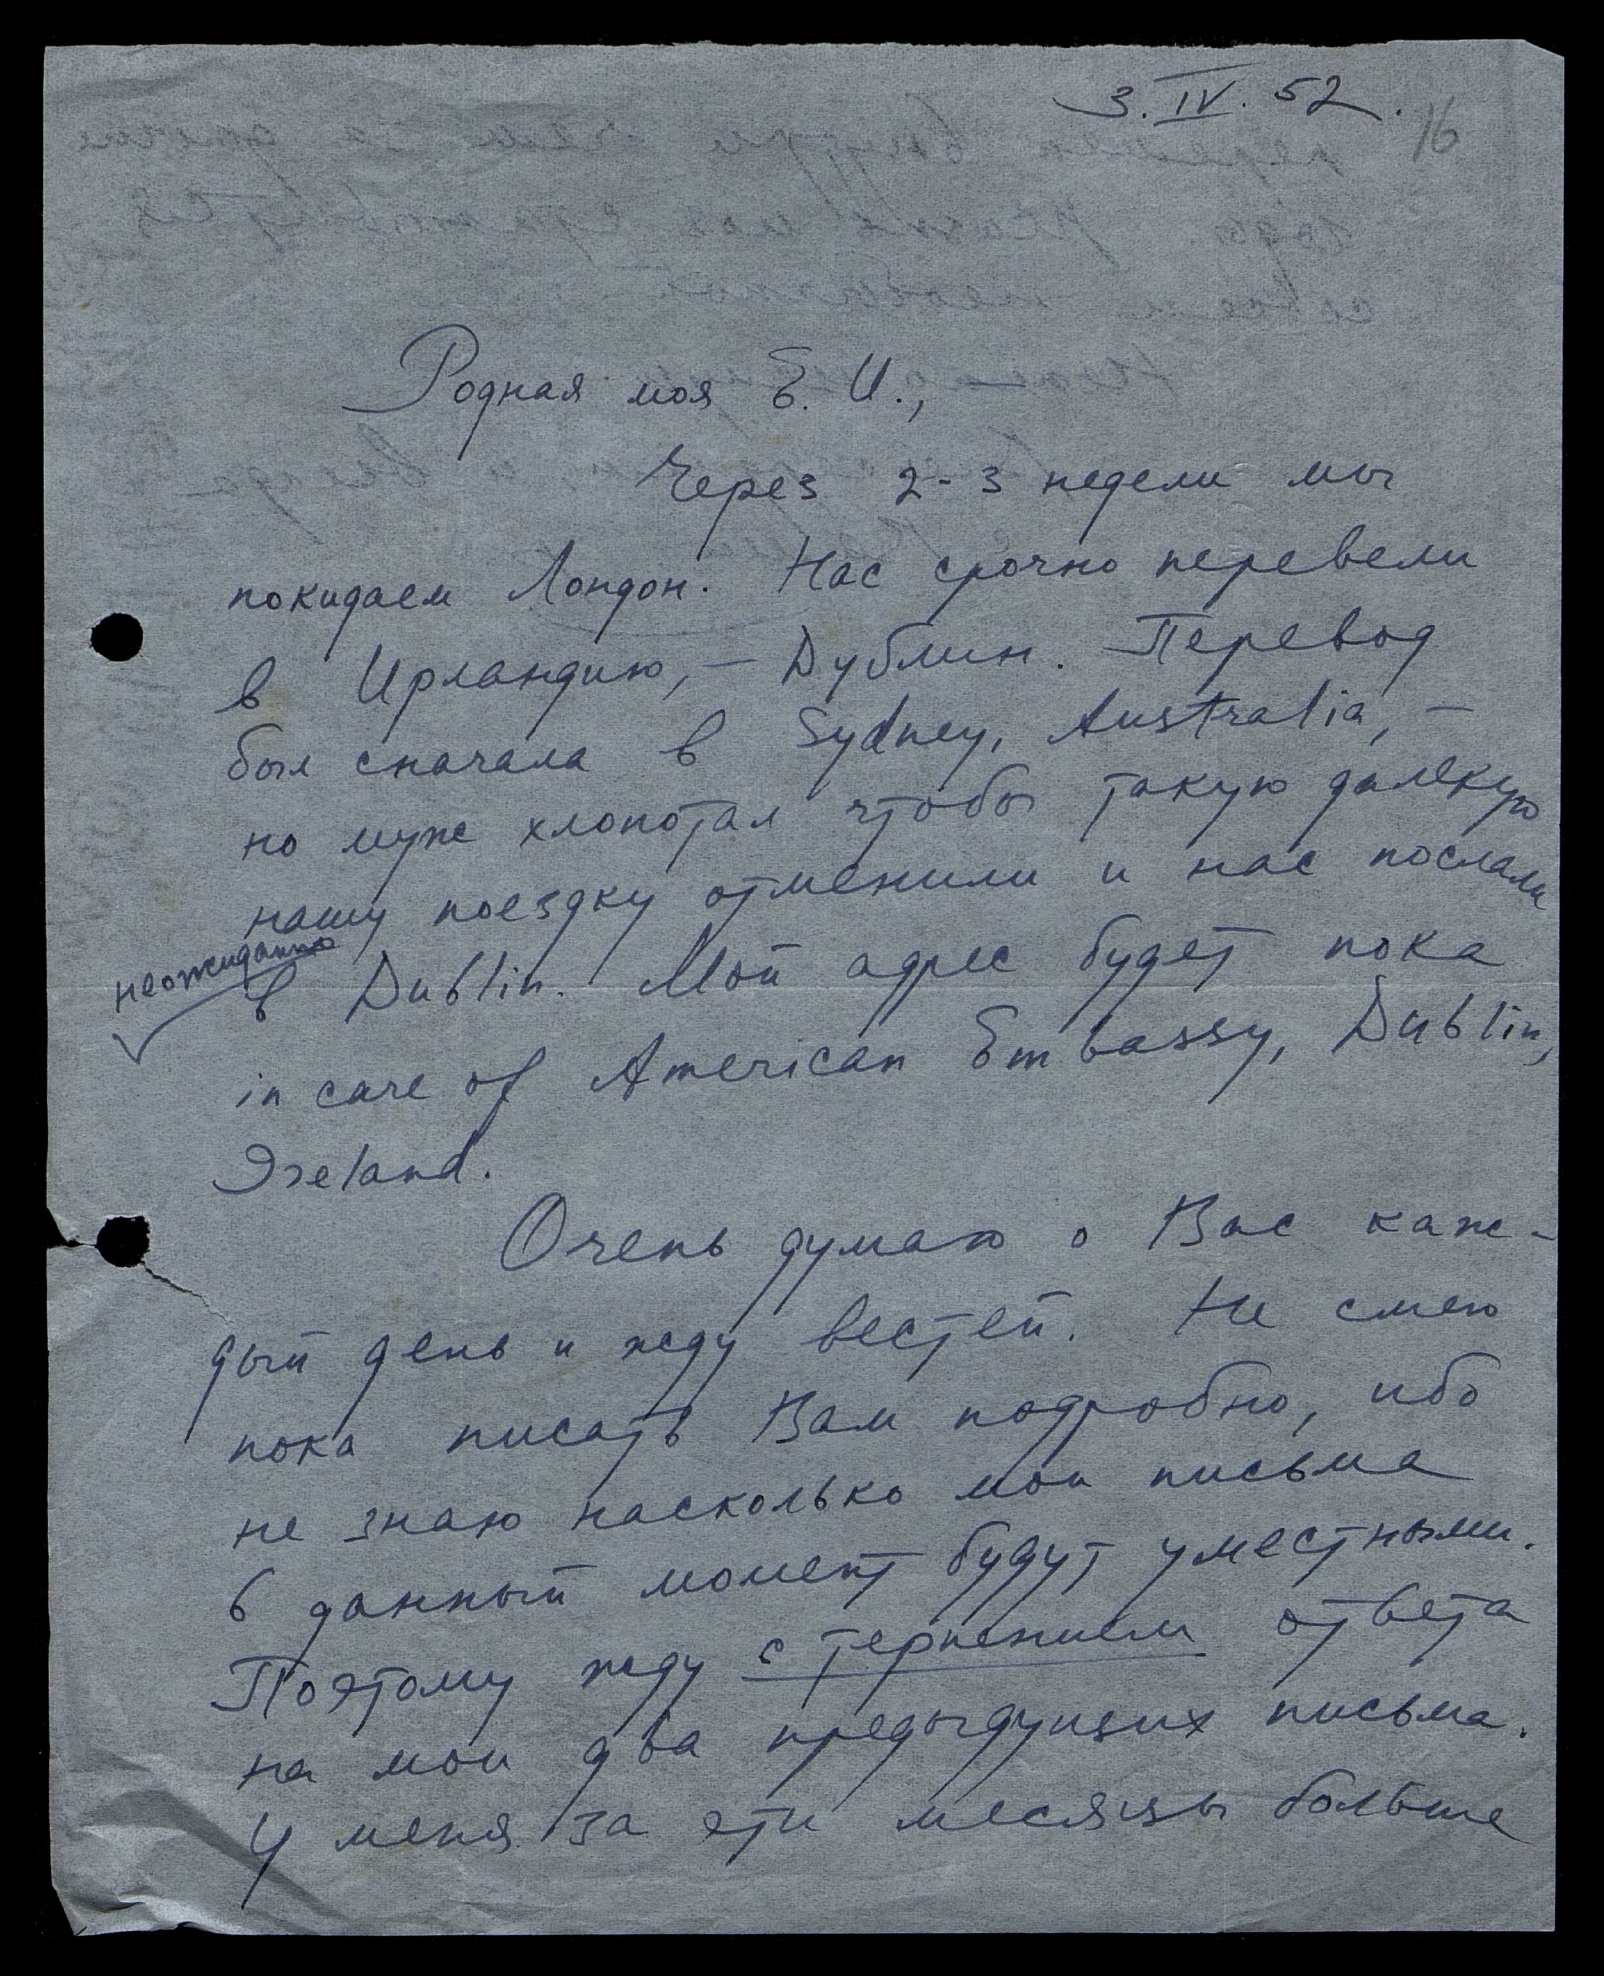 3. IV. 52.
16
Родная моя Е. И.,
Через 2-3 недели мы
покидаем Лондон. Нас срочно перевели
в Ирландию, – Дублин. Перевод
был сначала в Sydney, Australia, –
но муж хлопотал чтобы такую далекую
нашу поездку отменили и нас послали
неожиданно
в Dublin. Мой адрес будет пока
in care of American Embassy, Dublin,
Ireland.
Очень думаю о Вас каж-
дый день и жду вестей. Не смею
пока писать Вам подробно, ибо
не знаю насколько мои письма
в данный момент будут уместными.
Поэтому жду с терпением ответа
на мои два предыдущих письма.
У меня за эти месяцы больше